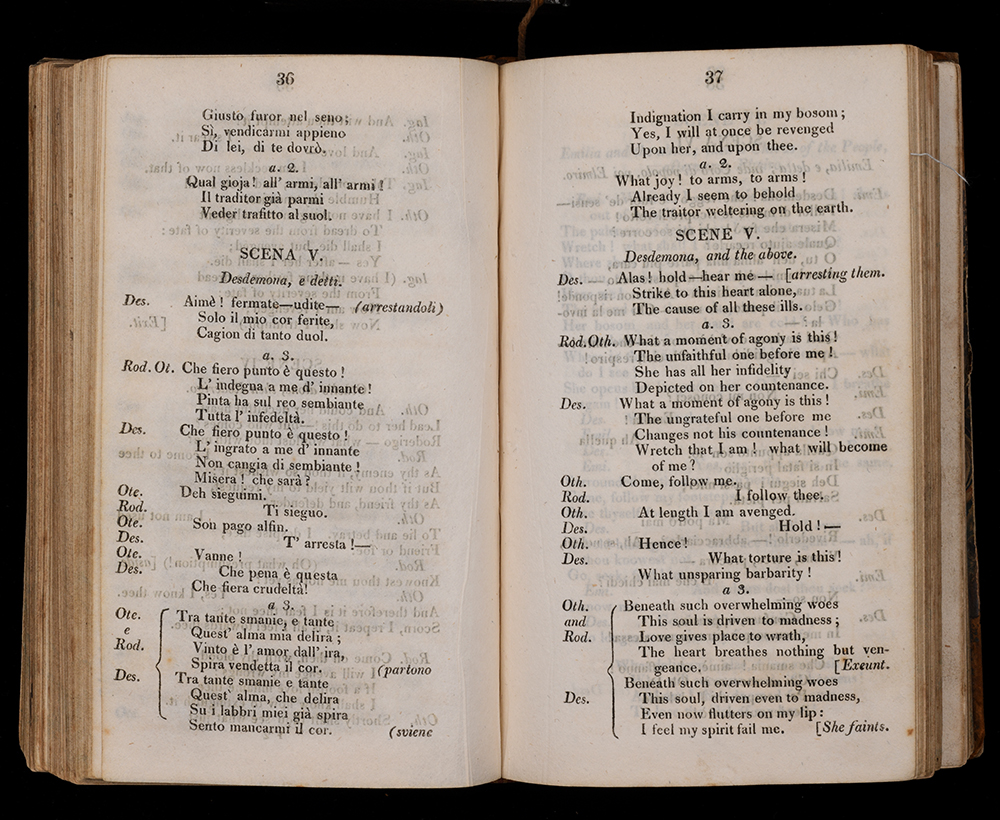 36
Giusto furor nel seno;
Sì, vendicarmi appieno
Di lei, di te dovrò.
a. 2.
Qual gioja! all' armi, all' armi!
Il traditor già parmi
Veder trafitto al suol.
SCENA V.
Desdemona, e detti.
Des. Aimè! fermate—udite— (arrestandoli)
Solo il mio cor ferite,
Cagion di tanto duol.
a. 3.
Rod. Ot. Che fiero punto è questo!
L' indegna a me d' innante!
Pinta ha sul reo sembiante
Tutta l' infedeltà.
Des. Che fiero punto è questo!
L' ingrato a me d' innante
Non cangia di sembiante!
Misera! che sarà?
Ote. Deh sieguimi.
Rod. Ti sieguo.
Ote. Son pago alfin.
Des. T' arresta!—
Ote. Vanne!
Des. Che pena è questa
Che fiera crudeltà!
a 3.
Ote. Tra tante smanie, e tante
e Quest' alma mia delira;
Rod. Vinto è l' amor dall' ira,
Spira vendetta il cor. (partono
Des. Tra tante smanie e tante
Quest' alma, che delira
Su i labbri miei già spira
Sento mancarmi il cor. (sviene
37
Indignation I carry in my bosom;
Yes, I will at once be revenged
Upon her, and upon thee.
a. 2.
What joy! to arms, to arms!
Already I seem to behold
The traitor weltering on the earth.
SCENE V.
Desdemona, and the above.
Des. Alas! hold—hear me — [arresting them.
Strike to this heart alone,
The cause of all these ills.
a. 3.
Rod. Oth. What a moment of agony is this!
The unfaithful one before me!
She has all her infidelity
Depicted on her countenance.
Des. What a moment of agony is this!
The ungrateful one before me
Changes not his countenance!
Wretch that I am! what will become
of me?
Oth. Come, follow me.
Rod. I follow thee.
Oth. At length I am avenged.
Des. Hold!—
Oth. Hence!
Des. What torture is this!
What unsparing barbarity!
a 3.
Oth. Beneath such overwhelming woes
and This soul is driven to madness;
Rod. Love gives place to wrath,
The heart breathes nothing but ven-
geance. [Exeunt.
Beneath such overwhelming woes
Des. This soul, driven even to madness,
Even now flutters on my lip:
I feel my spirit fail me. [She faints.